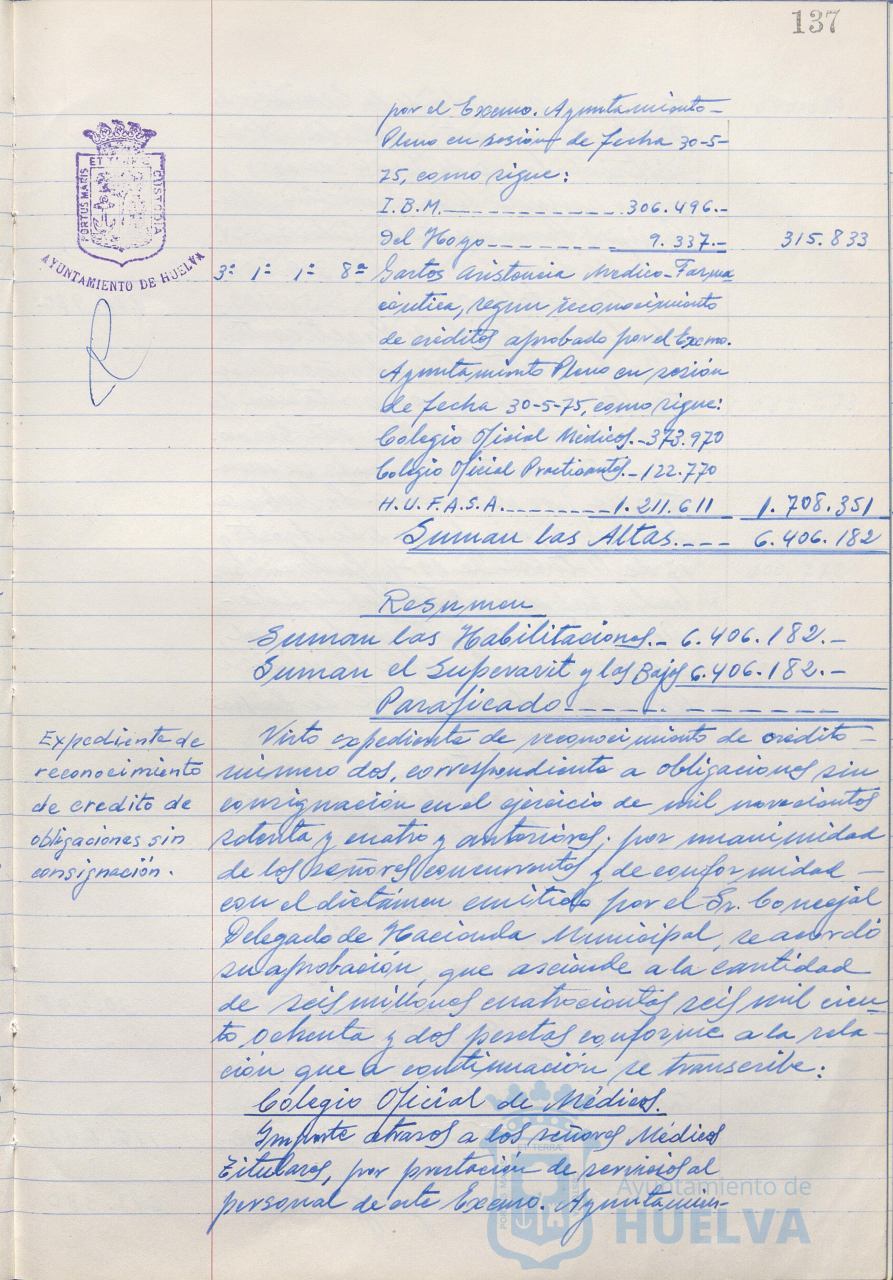 137
por el Excmo. Ayuntamiento-
Pleno en sesión de fecha 30-5-
75, como sigue:
I.B.M. 306.496.-
del Hoyo 9.337.- 315.833
3ª 1ª 1ª 8ª Gastos Asistencia Médico-Farma
céutica, según reconocimiento
de créditos aprobado por el Excmo.
Ayuntamiento Pleno en sesión
de fecha 30-5-75, como sigue:
Colegio Oficial Médicos.-373.970
Colegio Oficial Practicantes.-122.770
H.U.F.A.S.A. 1.211.611 1.708.351
Suman las Altas. 6.406.182
Resumen
Suman las Habilitaciones.- 6.406.182.-
Suman el Superavit y las Bajas 6.406.182.-
Parificado
Expediente de
reconocimiento
de credito de
obligaciones sin
consignación.
Visto expediente de reconocimiento de crédito-
número dos, correspondiente a obligaciones sin
consignación en el ejercicio de mil novecientos
setenta y cuatro y anteriores; por unanimidad
de los señores concurrentes y de conformidad-
con el dictámen emitido por el Sr. Concejal
Delegado de Hacienda Municipal, se acordó
su aprobación, que asciende a la cantidad
de seis millones cuatrocientos seis mil cien-
to ochenta y dos pesetas conforme a la rela-
ción que a continuación se transcribe:
Colegio Oficial de Médicos.
Importe atrasos a los señores Médicos
Titulares, por prestación de servicios al
personal de este Excmo. Ayuntamien-
PORTUS MARIS ET TERRAE CUSTODIA
AYUNTAMIENTO DE HUELVA
Ayuntamiento de
HUELVA